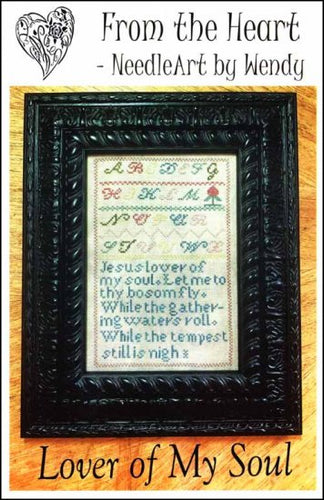 From the Heart
- NeedleArt by Wendy
A B D E F G
H K L M
N O P Q R
S T U V W Z
Jesus lover of
my soul. Let me to
thy bosom fly.
While the gather-
ing waters roll.
While the tempest
still is nigh
Lover of My Soul